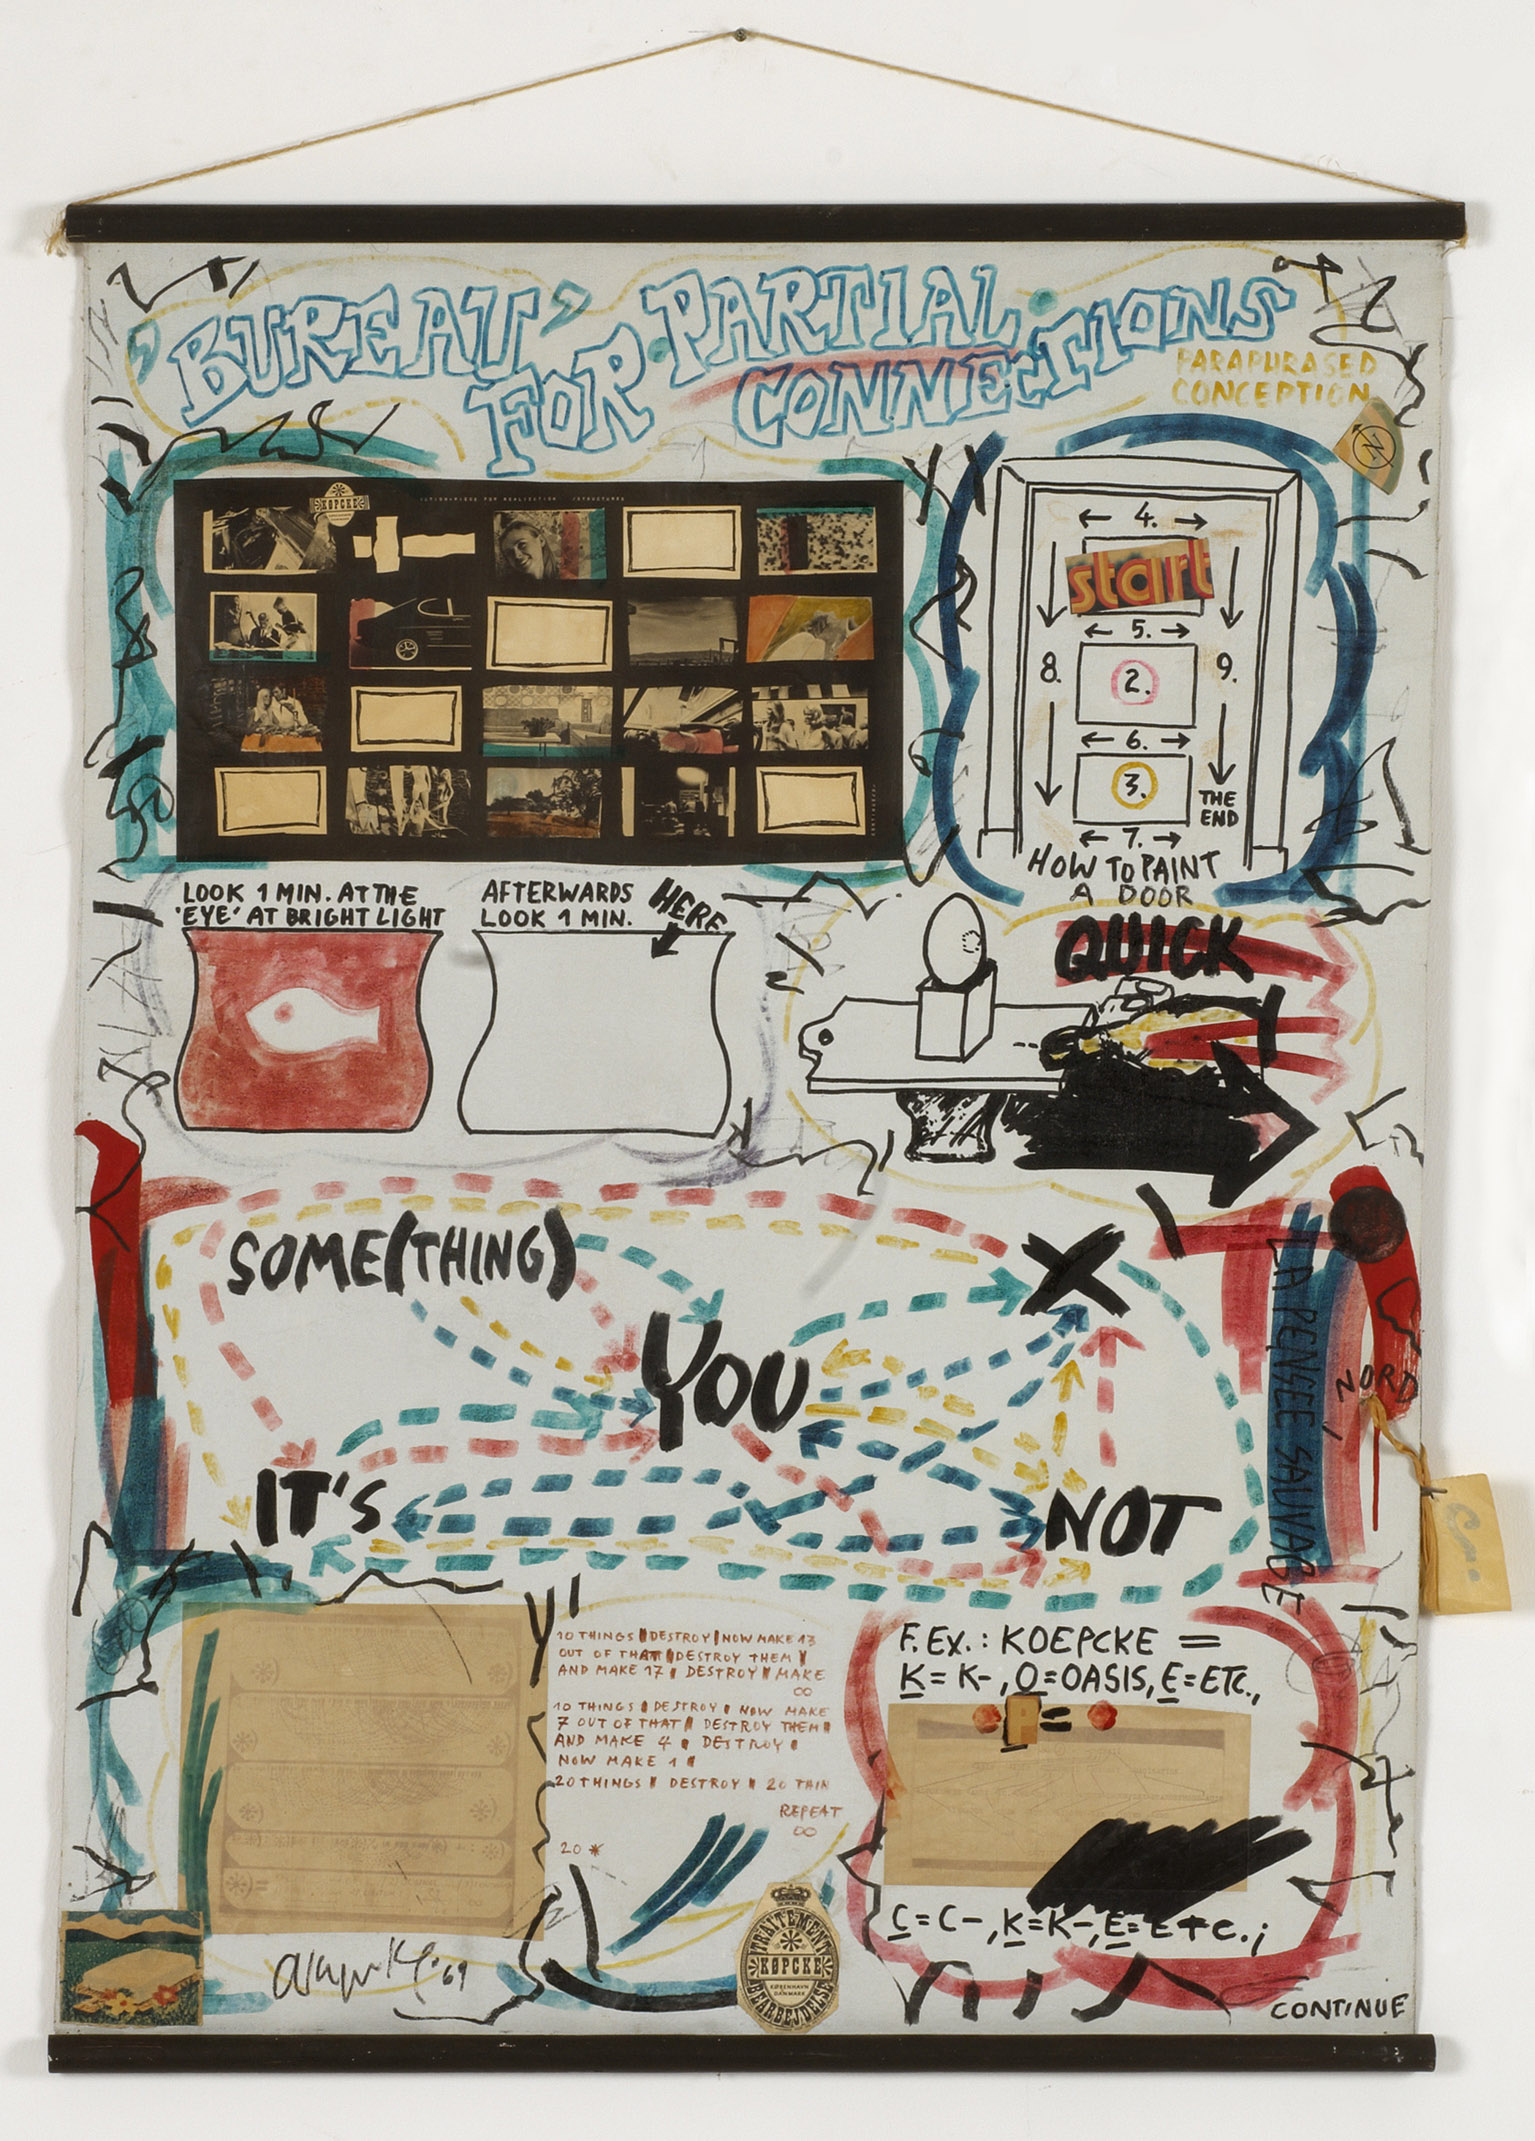 'BUREAU'
FOR PARTIAL
CONNECTIONS
PARAPHRASED
CONCEPTION
KØPCKE
4.
start
5.
8.
2.
9.
6.
3.
THE
END
7.
HOW TO PAINT
A DOOR
LOOK 1 MIN. AT THE
'EYE' AT BRIGHT LIGHT
AFTERWARDS
LOOK 1 MIN.
HERE
QUICK
SOME(THING)
X
YOU
IT'S
NOT
LA PENSÉE SAUVAGE
NORD
10 THINGS DESTROY NOW MAKE 13
OUT OF THAT DESTROY THEM
AND MAKE 17 DESTROY MAKE
∞
10 THINGS DESTROY NOW MAKE
7 OUT OF THAT DESTROY THEM
AND MAKE 4 DESTROY
NOW MAKE 1
20 THINGS DESTROY 20 THIN
REPEAT
∞
20 *
F. EX.: KOEPCKE =
K=K-, O=OASIS, E=ETC.,
P=
C=C-, K=K-, E=ETC.;
TRAITEMENT
KØPCKE
KØBENHAVN
DANMARK
BEARBEJDELSE
69
CONTINUE